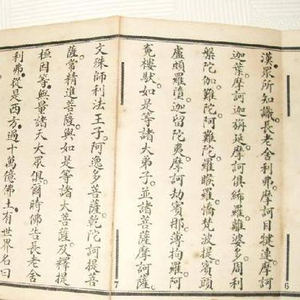 漢眾所知識長老舍利弗摩訶目犍連摩訶
迦葉摩訶迦旃延摩訶俱絺羅離婆多周利
槃陀伽難陀阿難陀羅睺羅憍梵波提賓頭
盧頗羅墮迦留陀夷摩訶劫賓那薄拘羅阿
㝹樓馱如是等諸大弟子並諸菩薩摩訶薩
文殊師利法王子阿逸多菩薩乾陀訶提菩
薩常精進菩薩與如是等諸大菩薩及釋提
桓因等無量諸天大眾俱爾時佛告長老舍
利弗從是西方過十萬億佛土有世界名曰
6
7